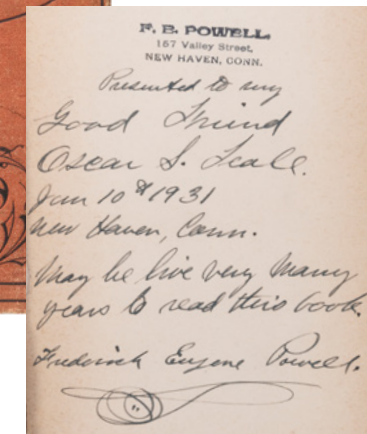 F. E. POWELL,
157 Valley Street,
NEW HAVEN, CONN.
Presented to my
Good Friend
Oscar S. Teale.
Jan 10th 1931
New Haven, Conn.
May he live very many
years to read this book.
Frederick Eugene Powell.